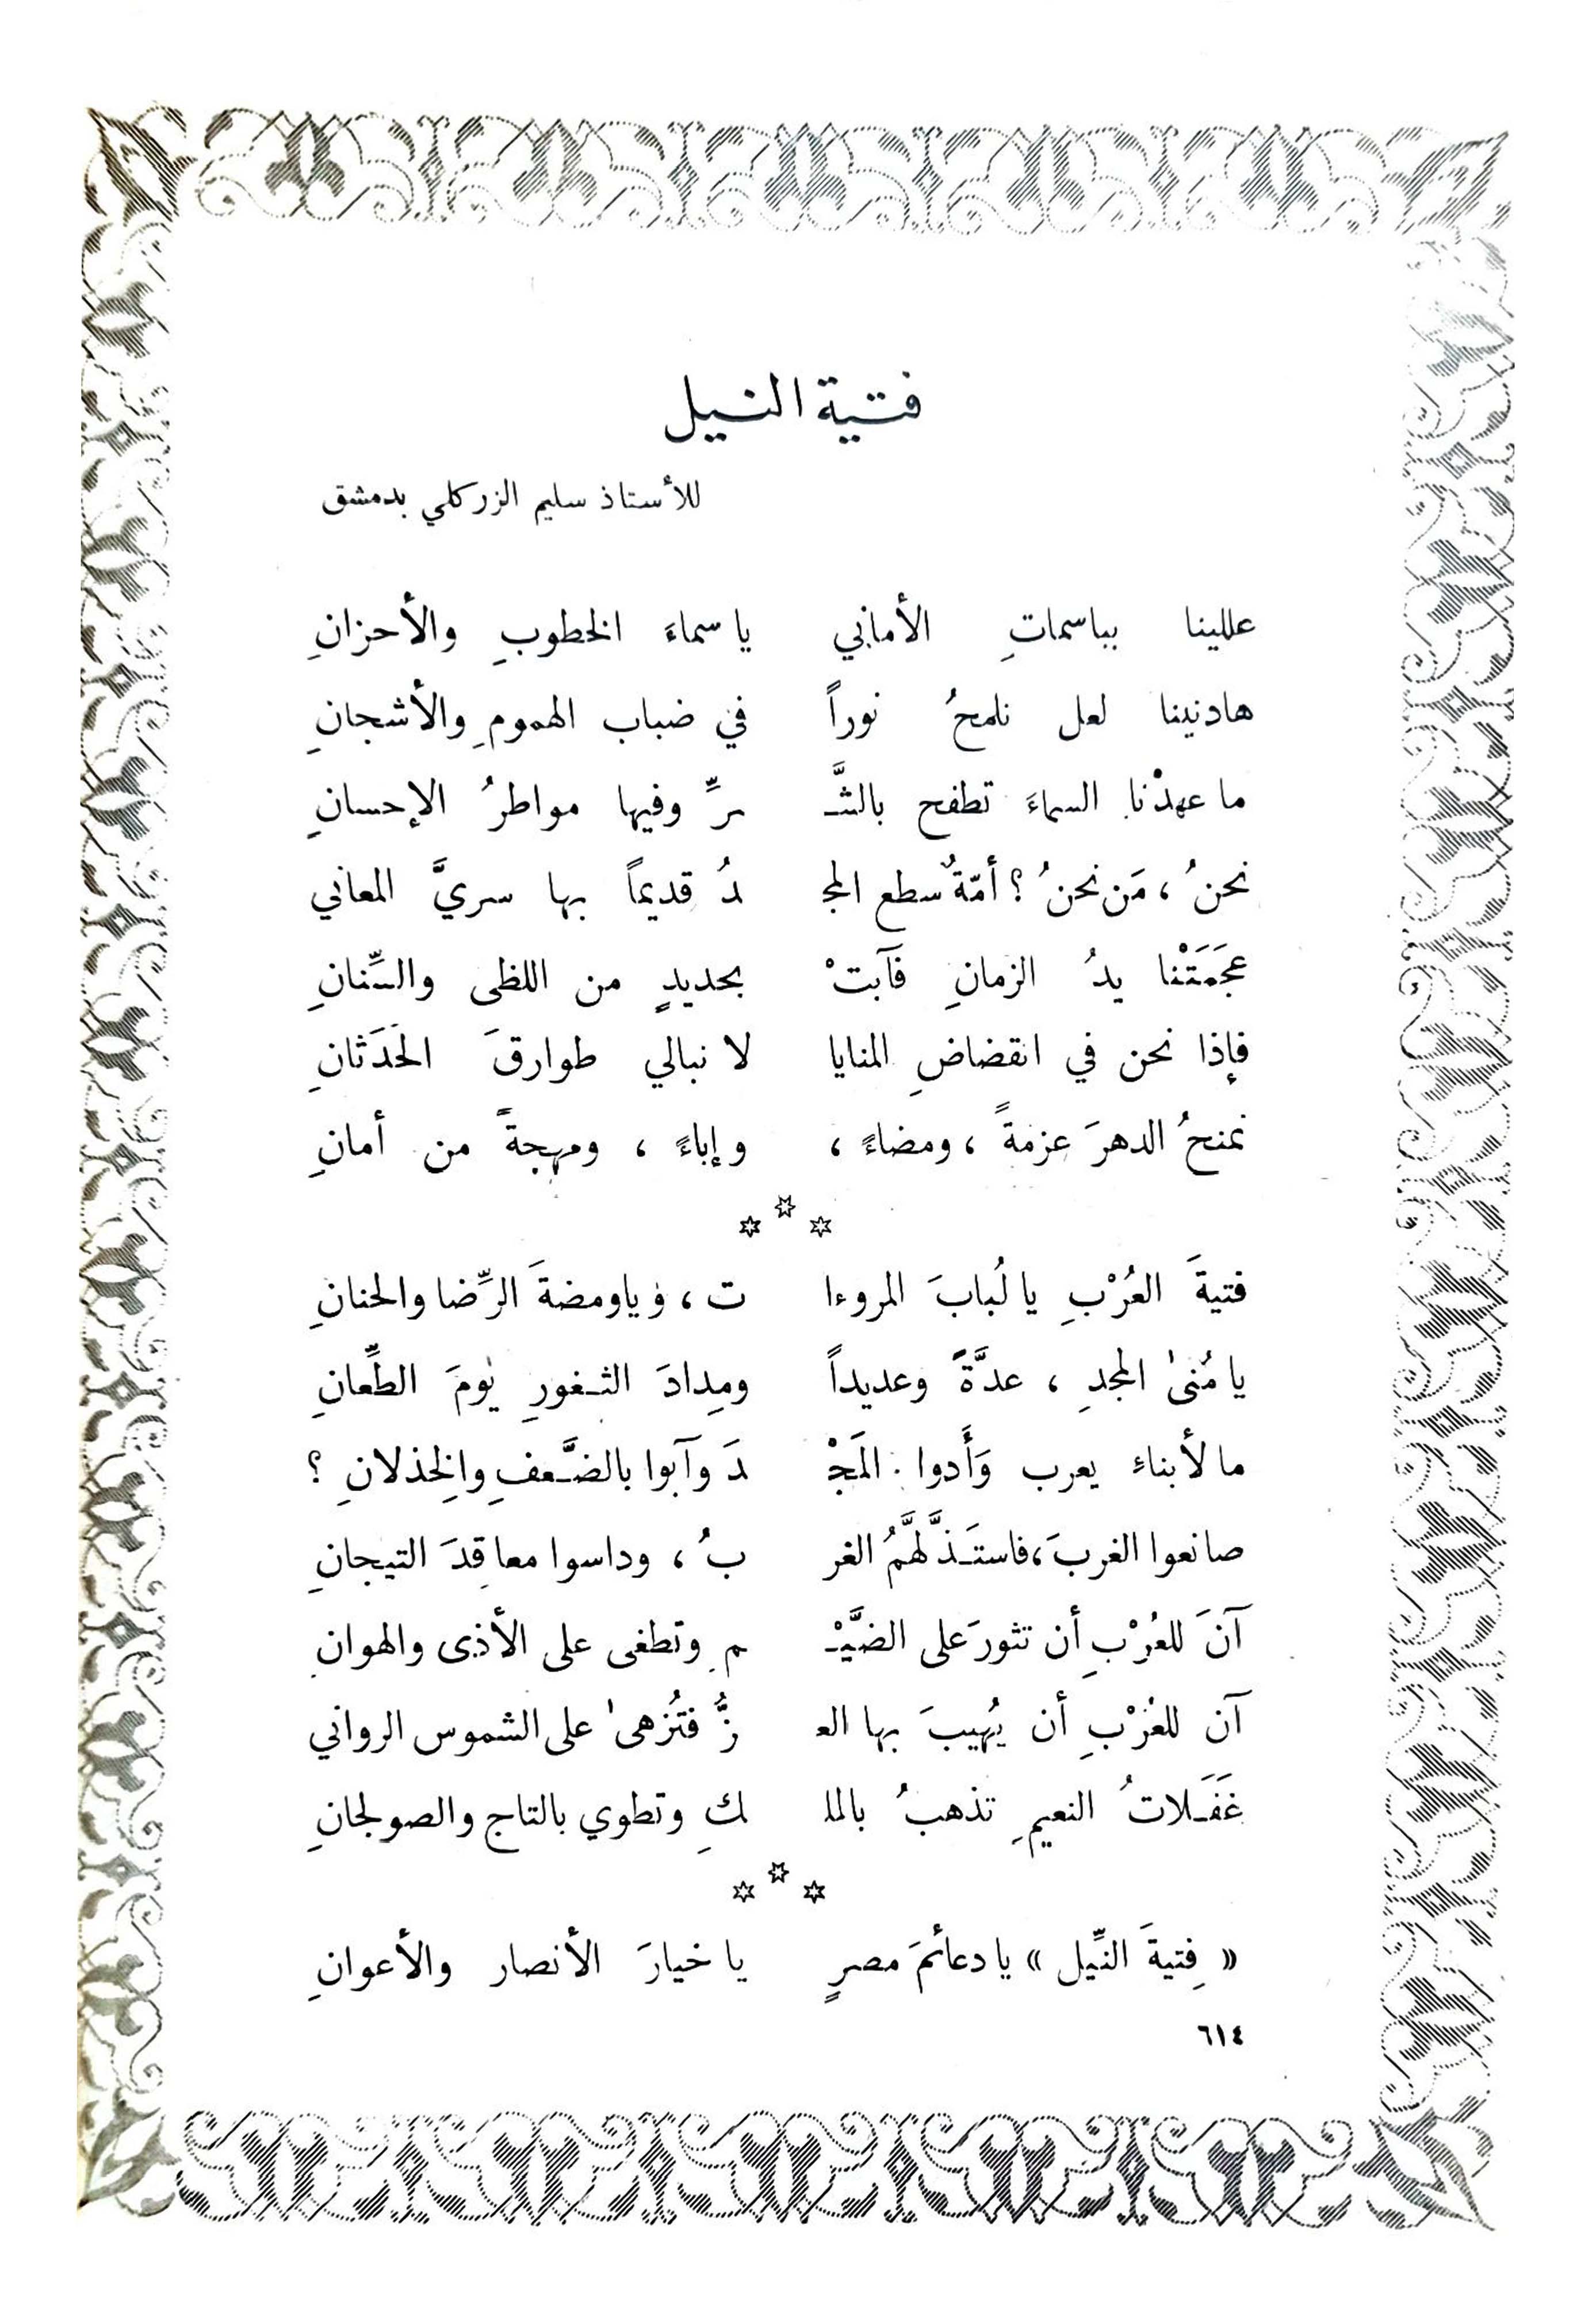 فتية النيل
للأستاذ سليم الزركلي بدمشق
عللينا بباسماتِ الأماني يا سماءَ الخطوبِ والأحزانِ
هادنينا لعل نلمحُ نوراً في ضباب الهمومِ والأشجانِ
ما عهدْنا السماءَ تطفح بالشَّـ ـرِّ وفيها مواطرُ الإحسانِ
نحنُ ، مَن نحنُ ؟ أمّةٌ سطع المجـ ـدُ قديماً بها سريَّ المعاني
عجَمَتْنا يدُ الزمانِ فَآبتْ بحديدٍ من اللظى والسِّنانِ
فإذا نحن في انقضاضِ المنايا لا نبالي طوارقَ الحَدَثانِ
نمنحُ الدهرَ عزمةً ، ومضاءً ، وإباءً ، ومهجةً من أمانِ
***
فتيةَ العُرْبِ يا لُبابَ المروءا ت ، وياومضةَ الرِّضا والحنانِ
يا مُنىٰ المجدِ ، عدَّةً وعديداً ومِدادَ الثـغورِ يومَ الطِّعانِ
ما لأبناءِ يعرب وَأَدوا المَجْـ ـدَ وآبوا بالضَّـعفِ والخِذلانِ ؟
صانعوا الغربَ ، فاستَـذَّلهَّمُ الغر بُ ، وداسوا معاقدَ التيجانِ
آنَ للعُرْبِ أن تثورَ على الضَّيْـ ـم وتطغى على الأذى والهوانِ
آن للعُرْبِ أن يُهيبَ بها العـ ـزُّ فتُزهىٰ على الشموس الرواني
غَفَـلاتُ النعيمِ تذهبُ بالملـ ـكِ وتطوي بالتاج والصولجانِ
***
« فِتيةَ النِّيل » يا دعائمَ مصرٍ يا خيارَ الأنصار والأعوانِ
٦١٤